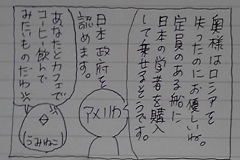 奥様はロシアを
失ったのにお優しいわ。
定員のある船に
日本の学者を購入
して乗せるそうです。
日本政府を
認めます。
アメリカ
あなたとカフェで
コーヒー飲んで
みたいものだわ
(うみねこ)